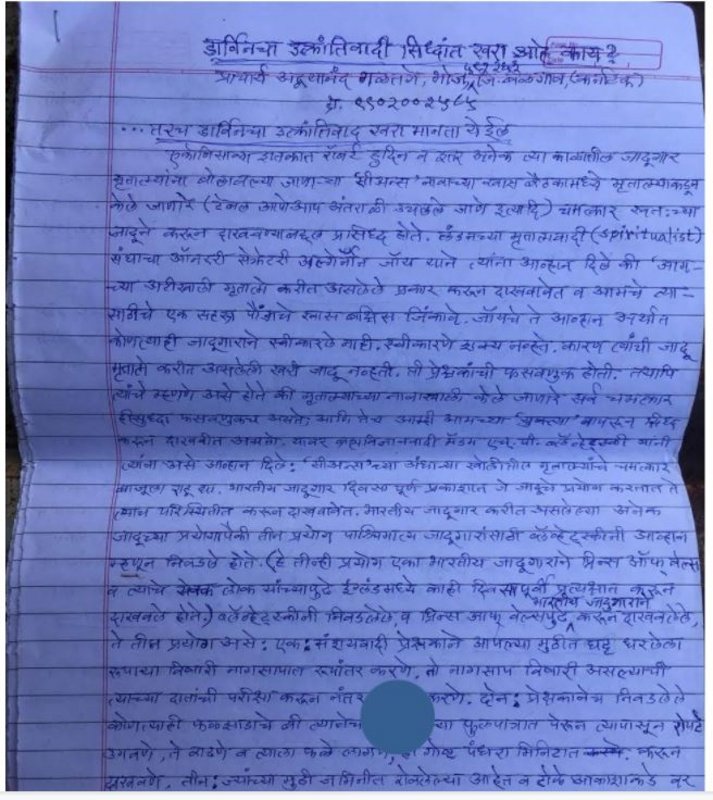 1
डार्विनचा उत्क्रांतिवादी सिध्दांत खरा आहे काय?
प्राचार्य अद्वयानंद गळतगे, भोज, जि. बेळगांव, (कर्नाटक)
मो. ९९०२००२५८५
...तरच डार्विनचा उत्क्रांतिवाद खरा मानता येईल
एकोणिसाव्या शतकात रॉबर्ट हुदिन व इतर अनेक त्या काळातील जादूगार
मृतात्म्यांना बोलावल्या जाणाऱ्या 'सीअन्स' नावाच्या खास बैठकामध्ये मृतात्म्याकडून
केले जाणारे (टेबल आपोआप अंतराळी उचलले जाणे इत्यादि) चमत्कार स्वतःच्या
जादूने करून दाखवण्याबद्दल प्रसिध्द होते. लंडनच्या मृतात्मवादी (spiritualist)
संघाचा ऑनररी सेक्रेटरी अल्गेर्नॉन जॉय याने त्यांना आव्हान दिले की 'आम-
च्या अटीखाली मृतात्मे करीत असलेले प्रकार करून दाखवावेत व आमचे त्या-
साठीचे एक सहस्र पौंडाचे खास बक्षिस जिंकावे. जॉयचे ते आव्हान अर्थात
कोणत्याही जादूगाराने स्वीकारले नाही. स्वीकारणे शक्य नव्हते. कारण त्यांची जादू
मृतात्मे करीत असलेली खरी जादू नव्हती. ती प्रेक्षकांची फसवणूक होती. तथापि
त्यांचे म्हणणे असे होते की मृतात्म्याच्या नावाखाली केले जाणारे सर्व चमत्कार
हीसुध्दा फसवणूकच असते, आणि तेच आम्ही आमच्या 'युक्त्या' वापरून सिध्द
करून दाखवीत असतो. यावर ब्रह्मविज्ञानवादी मॅडम एच. पी. ब्लॅव्हेट्स्की यांनी
त्यांना असे आव्हान दिले: 'सीअन्स'च्या अंधाऱ्या खोलीतील मृतात्म्यांचे चमत्कार
बाजूला राहू द्या. भारतीय जादूगार दिवसा पूर्ण प्रकाशात जे जादूचे प्रयोग करतात ते
त्याच परिस्थितीत करून दाखवावेत. भारतीय जादूगार करीत असलेल्या अनेक
जादूच्या प्रयोगापैकी तीन प्रयोग पाश्चिमात्य जादूगारांसाठी ब्लॅव्हेट्स्कीनी आव्हान
म्हणून निवडले होते. (हे तीन्ही प्रयोग एका भारतीय जादूगाराने प्रिन्स ऑफ वेल्स
व त्याचे सेवक लोक यांच्यापुढे इंग्लंडमध्ये काही दिवसापूर्वी प्रत्यक्षात करून
दाखवले होते.) ब्लॅव्हेट्स्कीनी निवडलेले, व प्रिन्स ऑफ वेल्सपुढे भारतीय जादूगाराने करून दाखवलेले,
ते तीन प्रयोग असे: एक: संशयवादी प्रेक्षकाने आपल्या मुठीत घट्ट धरलेला
रूपाया विषारी नागसापात रूपांतर करणे. तो नागसाप विषारी असल्याची
त्याच्या दातांची परीक्षा करून नंतर करणे. दोन: प्रेक्षकानेच निवडलेले
कोणत्याही फळझाडाचे बी त्यानेच च्या फुलपात्रात पेरून त्यापासून रोपटे
उगवणे, ते वाढणे व त्याला फळे लागणे, ही गोष्ट पंधरा मिनिटात करून
दाखवणे. तीन: ज्यांच्या मुठी जमिनीत रोवलेल्या आहेत व टोके आकाशाकडे वर